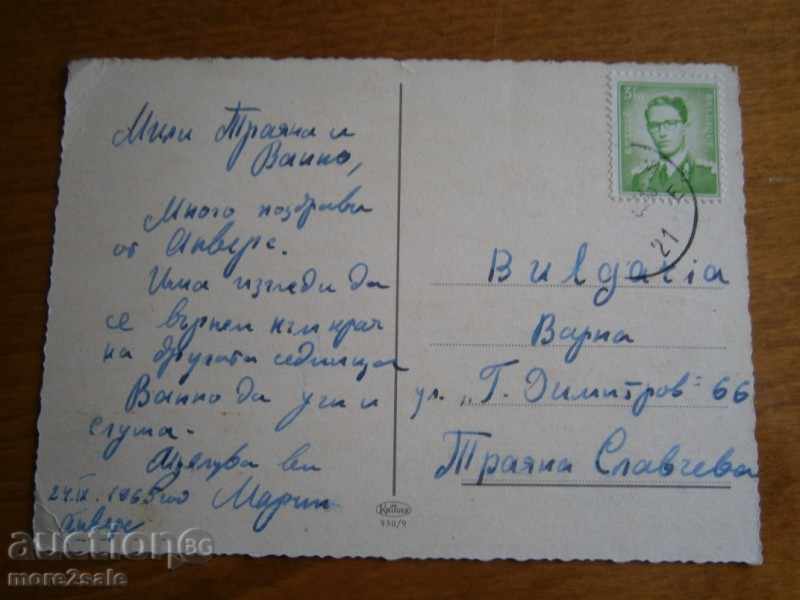 Мили Траяна и
Ванко,
Много поздрави
от Анверс.
Има изгледи да
се върнем към края
на другата седмица
Ванко да учи и
слуша.
Целува ви
Марин
24.IX.1965 год
Анверс
3F
21
Bulgaria
Варна
ул. „Г. Димитров" 66
Траяна Славчева
Krüger
950/9
auctionBG
more2sale